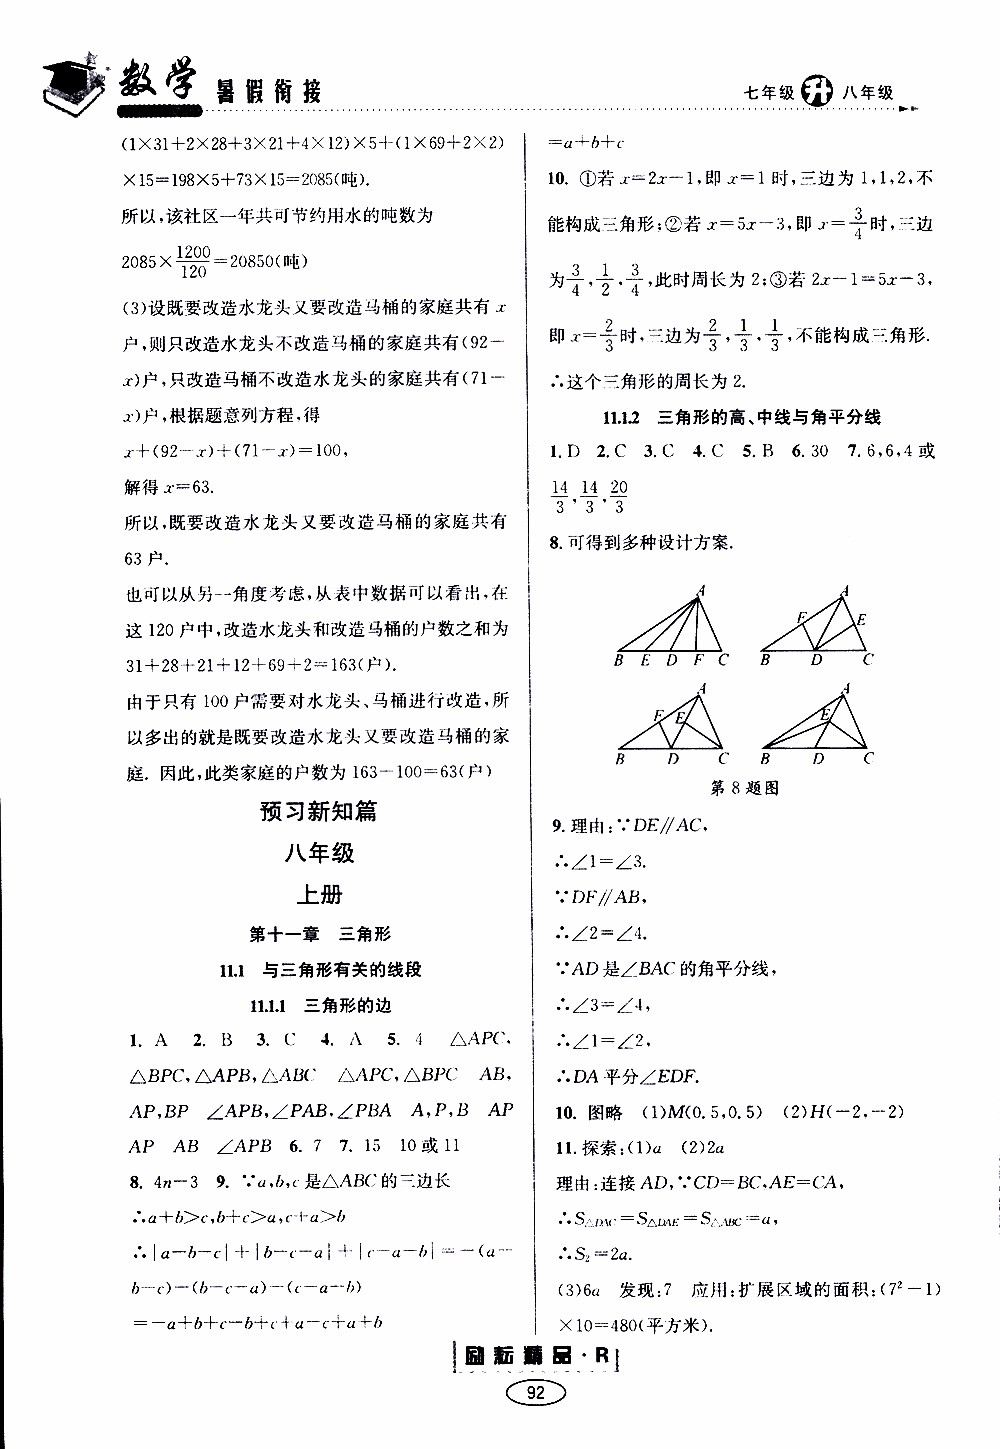 数学 暑假衔接
七年级 升 八年级
(1×31+2×28+3×21+4×12)×5+(1×69+2×2)
×15=198×5+73×15=2085(吨).
所以,该社区一年共可节约用水的吨数为
2085×1200/120=20850(吨)
(3)设既要改造水龙头又要改造马桶的家庭共有 x
户,则只改造水龙头不改造马桶的家庭共有(92-
x)户,只改造马桶不改造水龙头的家庭共有(71-
x)户,根据题意列方程,得
x+(92-x)+(71-x)=100,
解得 x=63.
所以,既要改造水龙头又要改造马桶的家庭共有
63 户.
也可以从另一角度考虑,从表中数据可以看出,在
这 120 户中,改造水龙头和改造马桶的户数之和为
31+28+21+12+69+2=163(户).
由于只有 100 户需要对水龙头、马桶进行改造,所
以多出的就是既要改造水龙头又要改造马桶的家
庭. 因此,此类家庭的户数为 163-100=63(户)
预习新知篇
八年级
上册
第十一章 三角形
11.1 与三角形有关的线段
11.1.1 三角形的边
1. A 2. B 3. C 4. A 5. 4 △APC,
△BPC,△APB,△ABC △APC,△BPC AB,
AP,BP ∠APB,∠PAB,∠PBA A,P,B AP
AP AB ∠APB 6. 7 7. 15 10 或 11
8. 4n-3 9. ∵a,b,c 是△ABC 的三边长
∴a+b>c,b+c>a,c+a>b
∴|a-b-c|+|b-c-a|+|c-a-b|=-(a-
b-c)-(b-c-a)-(c-a-b)
=-a+b+c-b+c+a-c+a+b
=a+b+c
10. ①若 x=2x-1,即 x=1 时,三边为 1,1,2,不
能构成三角形;②若 x=5x-3,即 x=3/4时,三边
为3/4,1/2,3/4,此时周长为 2;③若 2x-1=5x-3,
即 x=2/3时,三边为2/3,1/3,1/3,不能构成三角形.
∴这个三角形的周长为 2.
11.1.2 三角形的高、中线与角平分线
1. D 2. C 3. C 4. C 5. B 6. 30 7. 6,6,4 或
14/3,14/3,20/3
8. 可得到多种设计方案.
A A
F E
B E D F C B D C
A A
F E E
B D C B D C
第 8 题图
9. 理由:∵DE∥AC,
∴∠1=∠3.
∵DF∥AB,
∴∠2=∠4.
∵AD 是∠BAC 的角平分线,
∴∠3=∠4,
∴∠1=∠2,
∴DA 平分∠EDF.
10. 图略 (1)M(0.5,0.5) (2)H(-2,-2)
11. 探索:(1)a (2)2a
理由:连接 AD,∵CD=BC,AE=CA,
∴S△DAC=S△DAE=S△ABC=a,
∴S₂=2a.
(3)6a 发现:7 应用:扩展区域的面积:(7²-1)
×10=480(平方米).
励耘精品·R
92